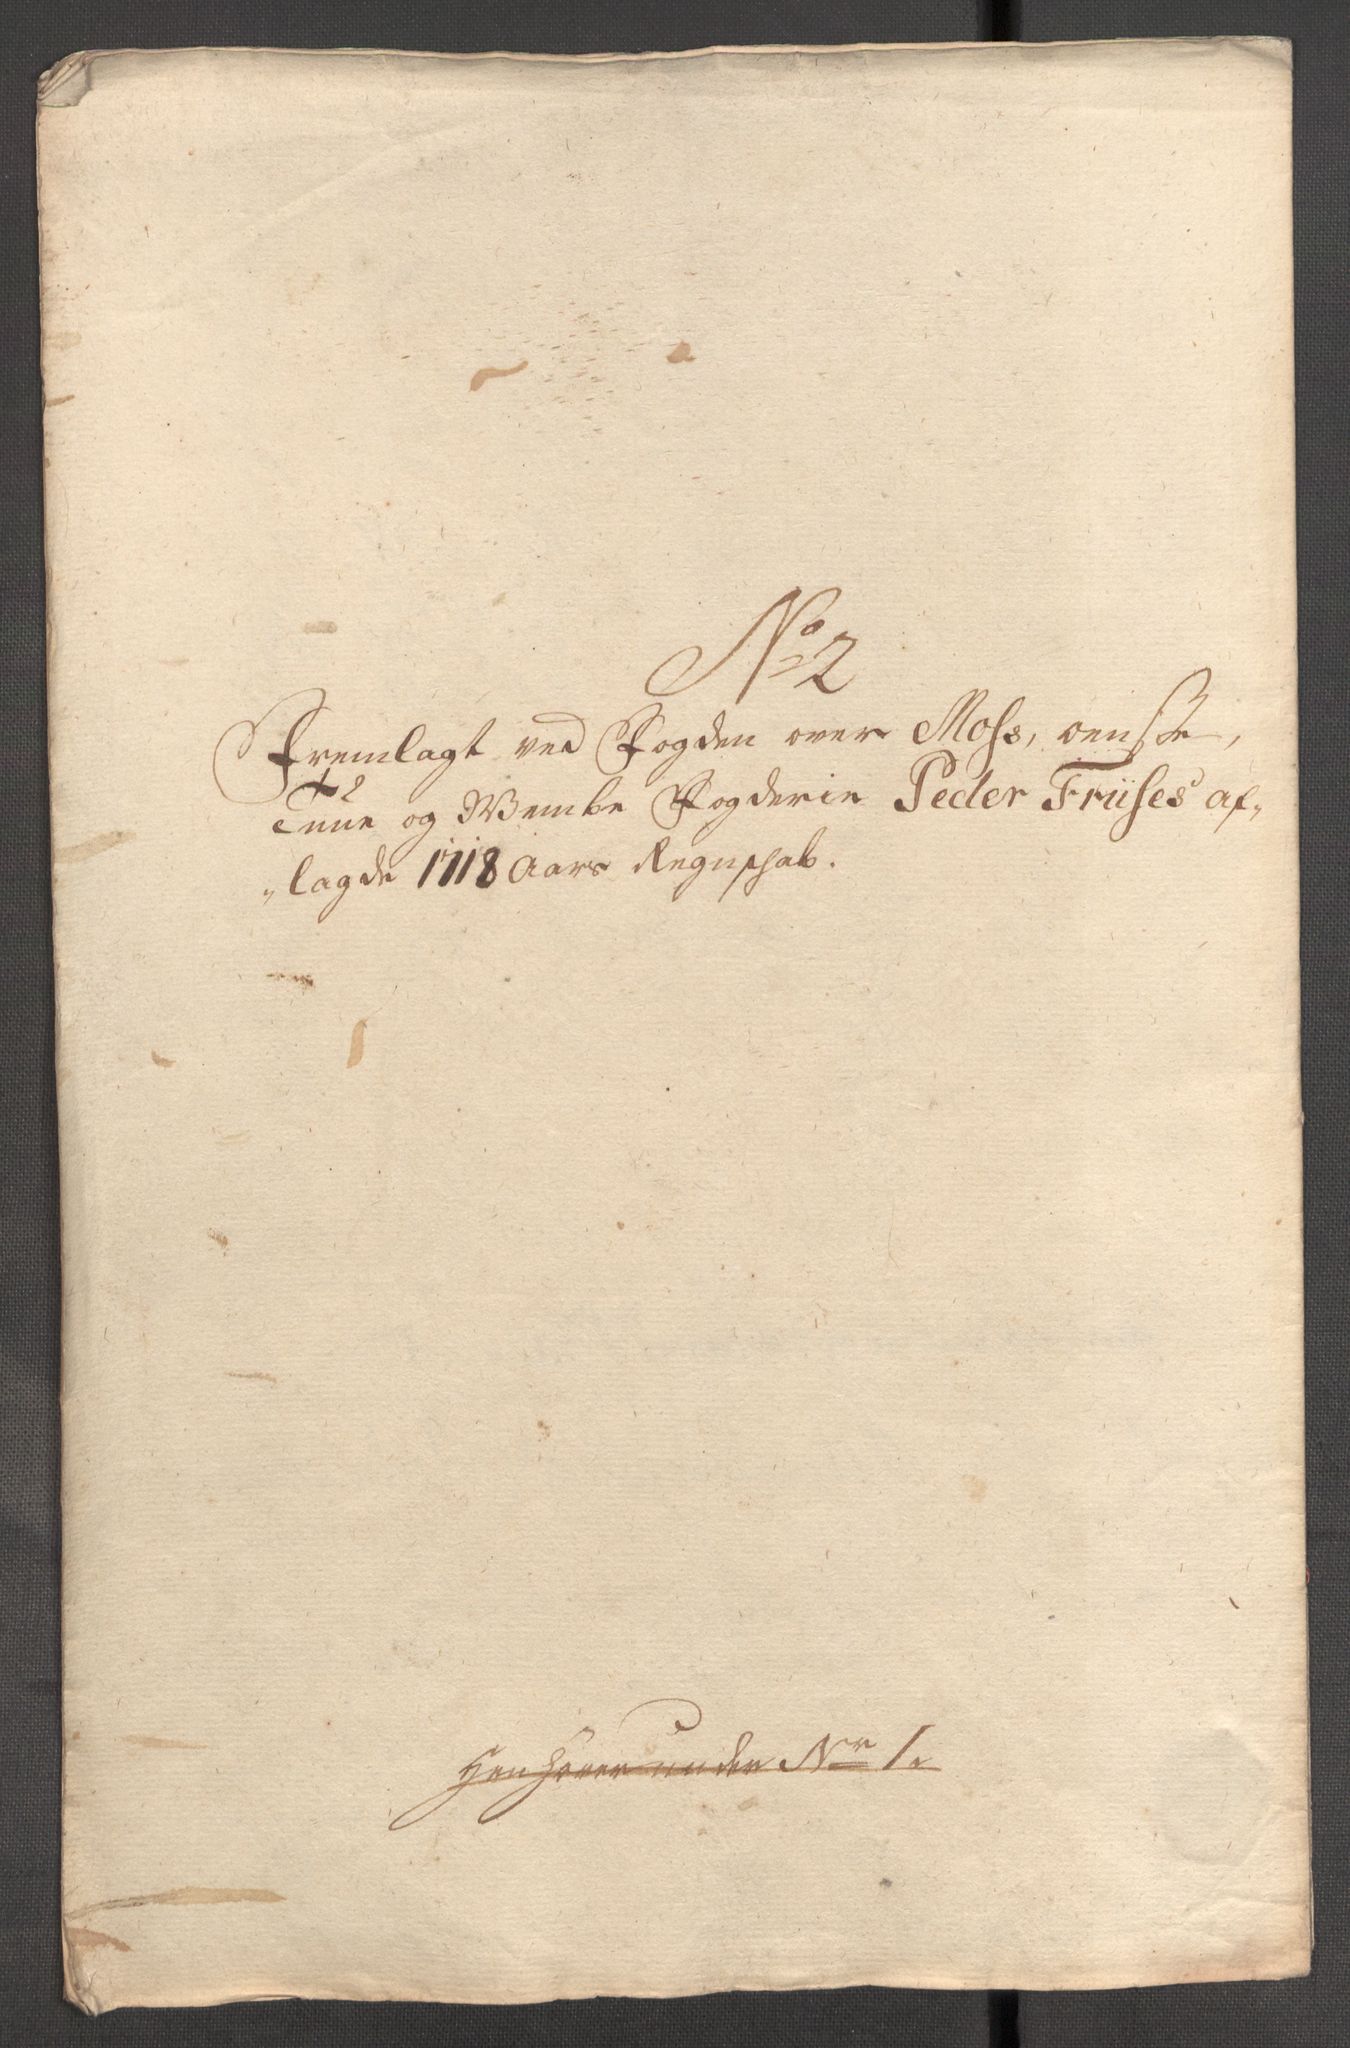 No 2
Fremlagt ved Fogden over Moss, Oensøe,
Tune og Wembe Fogderie Peder Friises af„
„lagde 1718 Aars Regnschab.
Henhører under Nr 1.